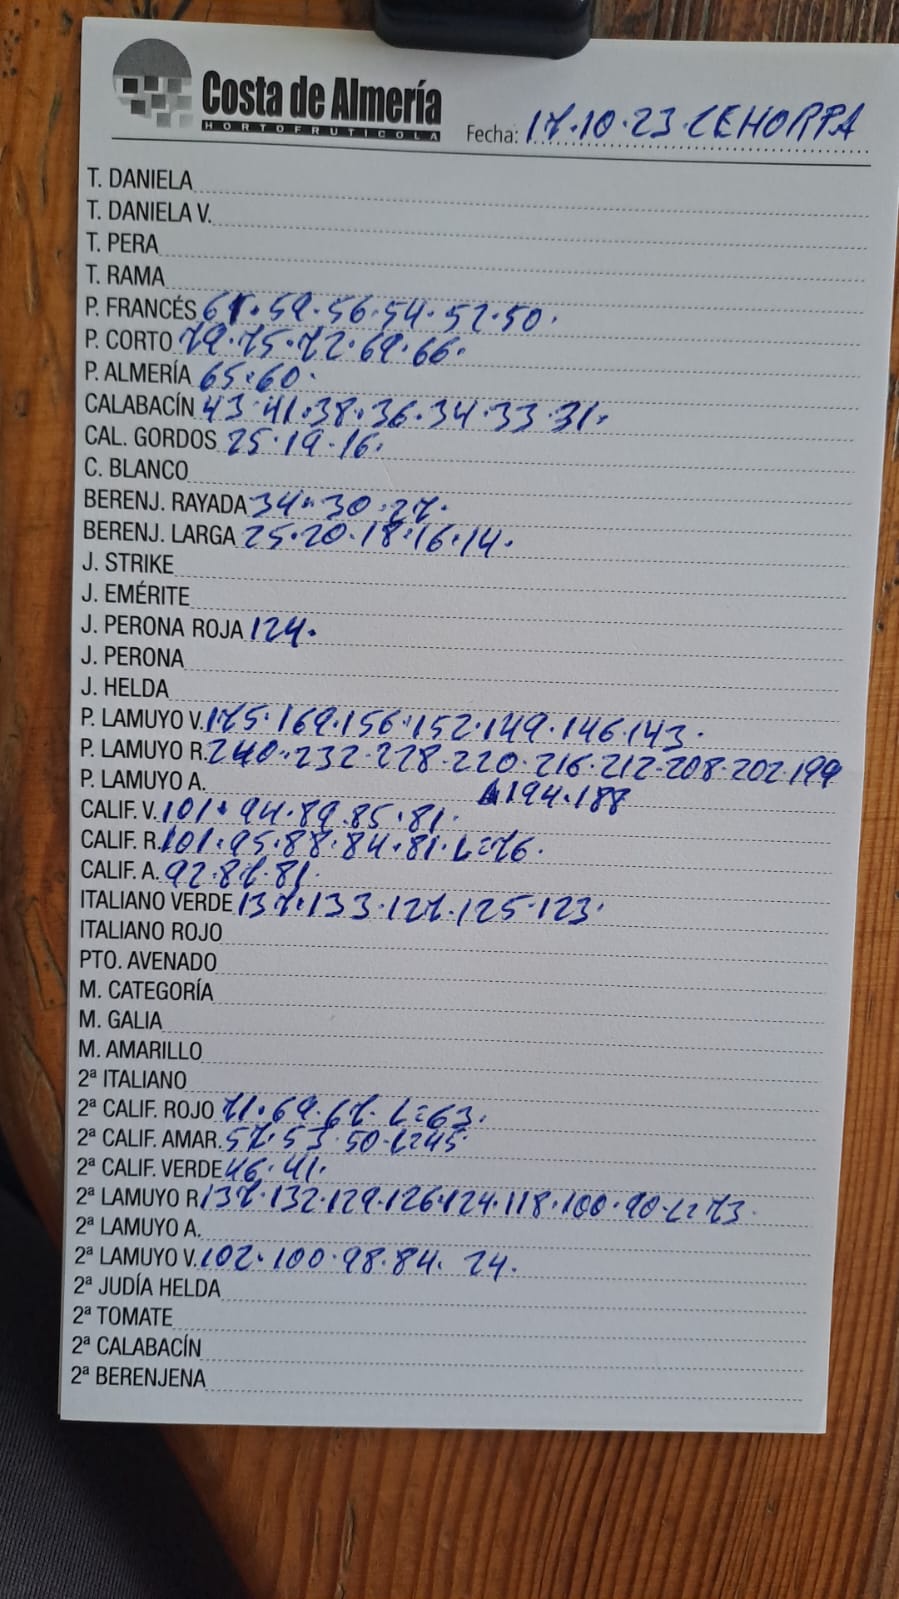 Costa de Almería
HORTOFRUTICOLA
Fecha: 17.10.23.CEHORPA
T. DANIELA
T. DANIELA V.
T. PERA
T. RAMA
P. FRANCÉS 61.59.56.54.52.50.
P. CORTO 79.75.72.69.66.
P. ALMERÍA 65.60.
CALABACÍN 43.41.38.36.34.33.31.
CAL. GORDOS 25.19.16.
C. BLANCO
BERENJ. RAYADA 34.30.27.
BERENJ. LARGA 25.20.18.16.14.
J. STRIKE
J. EMÉRITE
J. PERONA ROJA 124.
J. PERONA
J. HELDA
P. LAMUYO V. 175.169.156.152.149.146.143.
P. LAMUYO R. 240.232.228.220.216.212.208.202.199
P. LAMUYO A. 194.188
CALIF. V. 101.94.89.85.81.
CALIF. R. 101.95.88.84.81.L=76.
CALIF. A. 92.87.81.
ITALIANO VERDE 137.133.127.125.123.
ITALIANO ROJO
PTO. AVENADO
M. CATEGORÍA
M. GALIA
M. AMARILLO
2ª ITALIANO
2ª CALIF. ROJO 71.69.67.L=63.
2ª CALIF. AMAR. 57.53.50.L=45
2ª CALIF. VERDE 46.41.
2ª LAMUYO R 137.132.129.126.124.118.100.90.L=73.
2ª LAMUYO A.
2ª LAMUYO V. 102.100.98.84. 24.
2ª JUDÍA HELDA
2ª TOMATE
2ª CALABACÍN
2ª BERENJENA